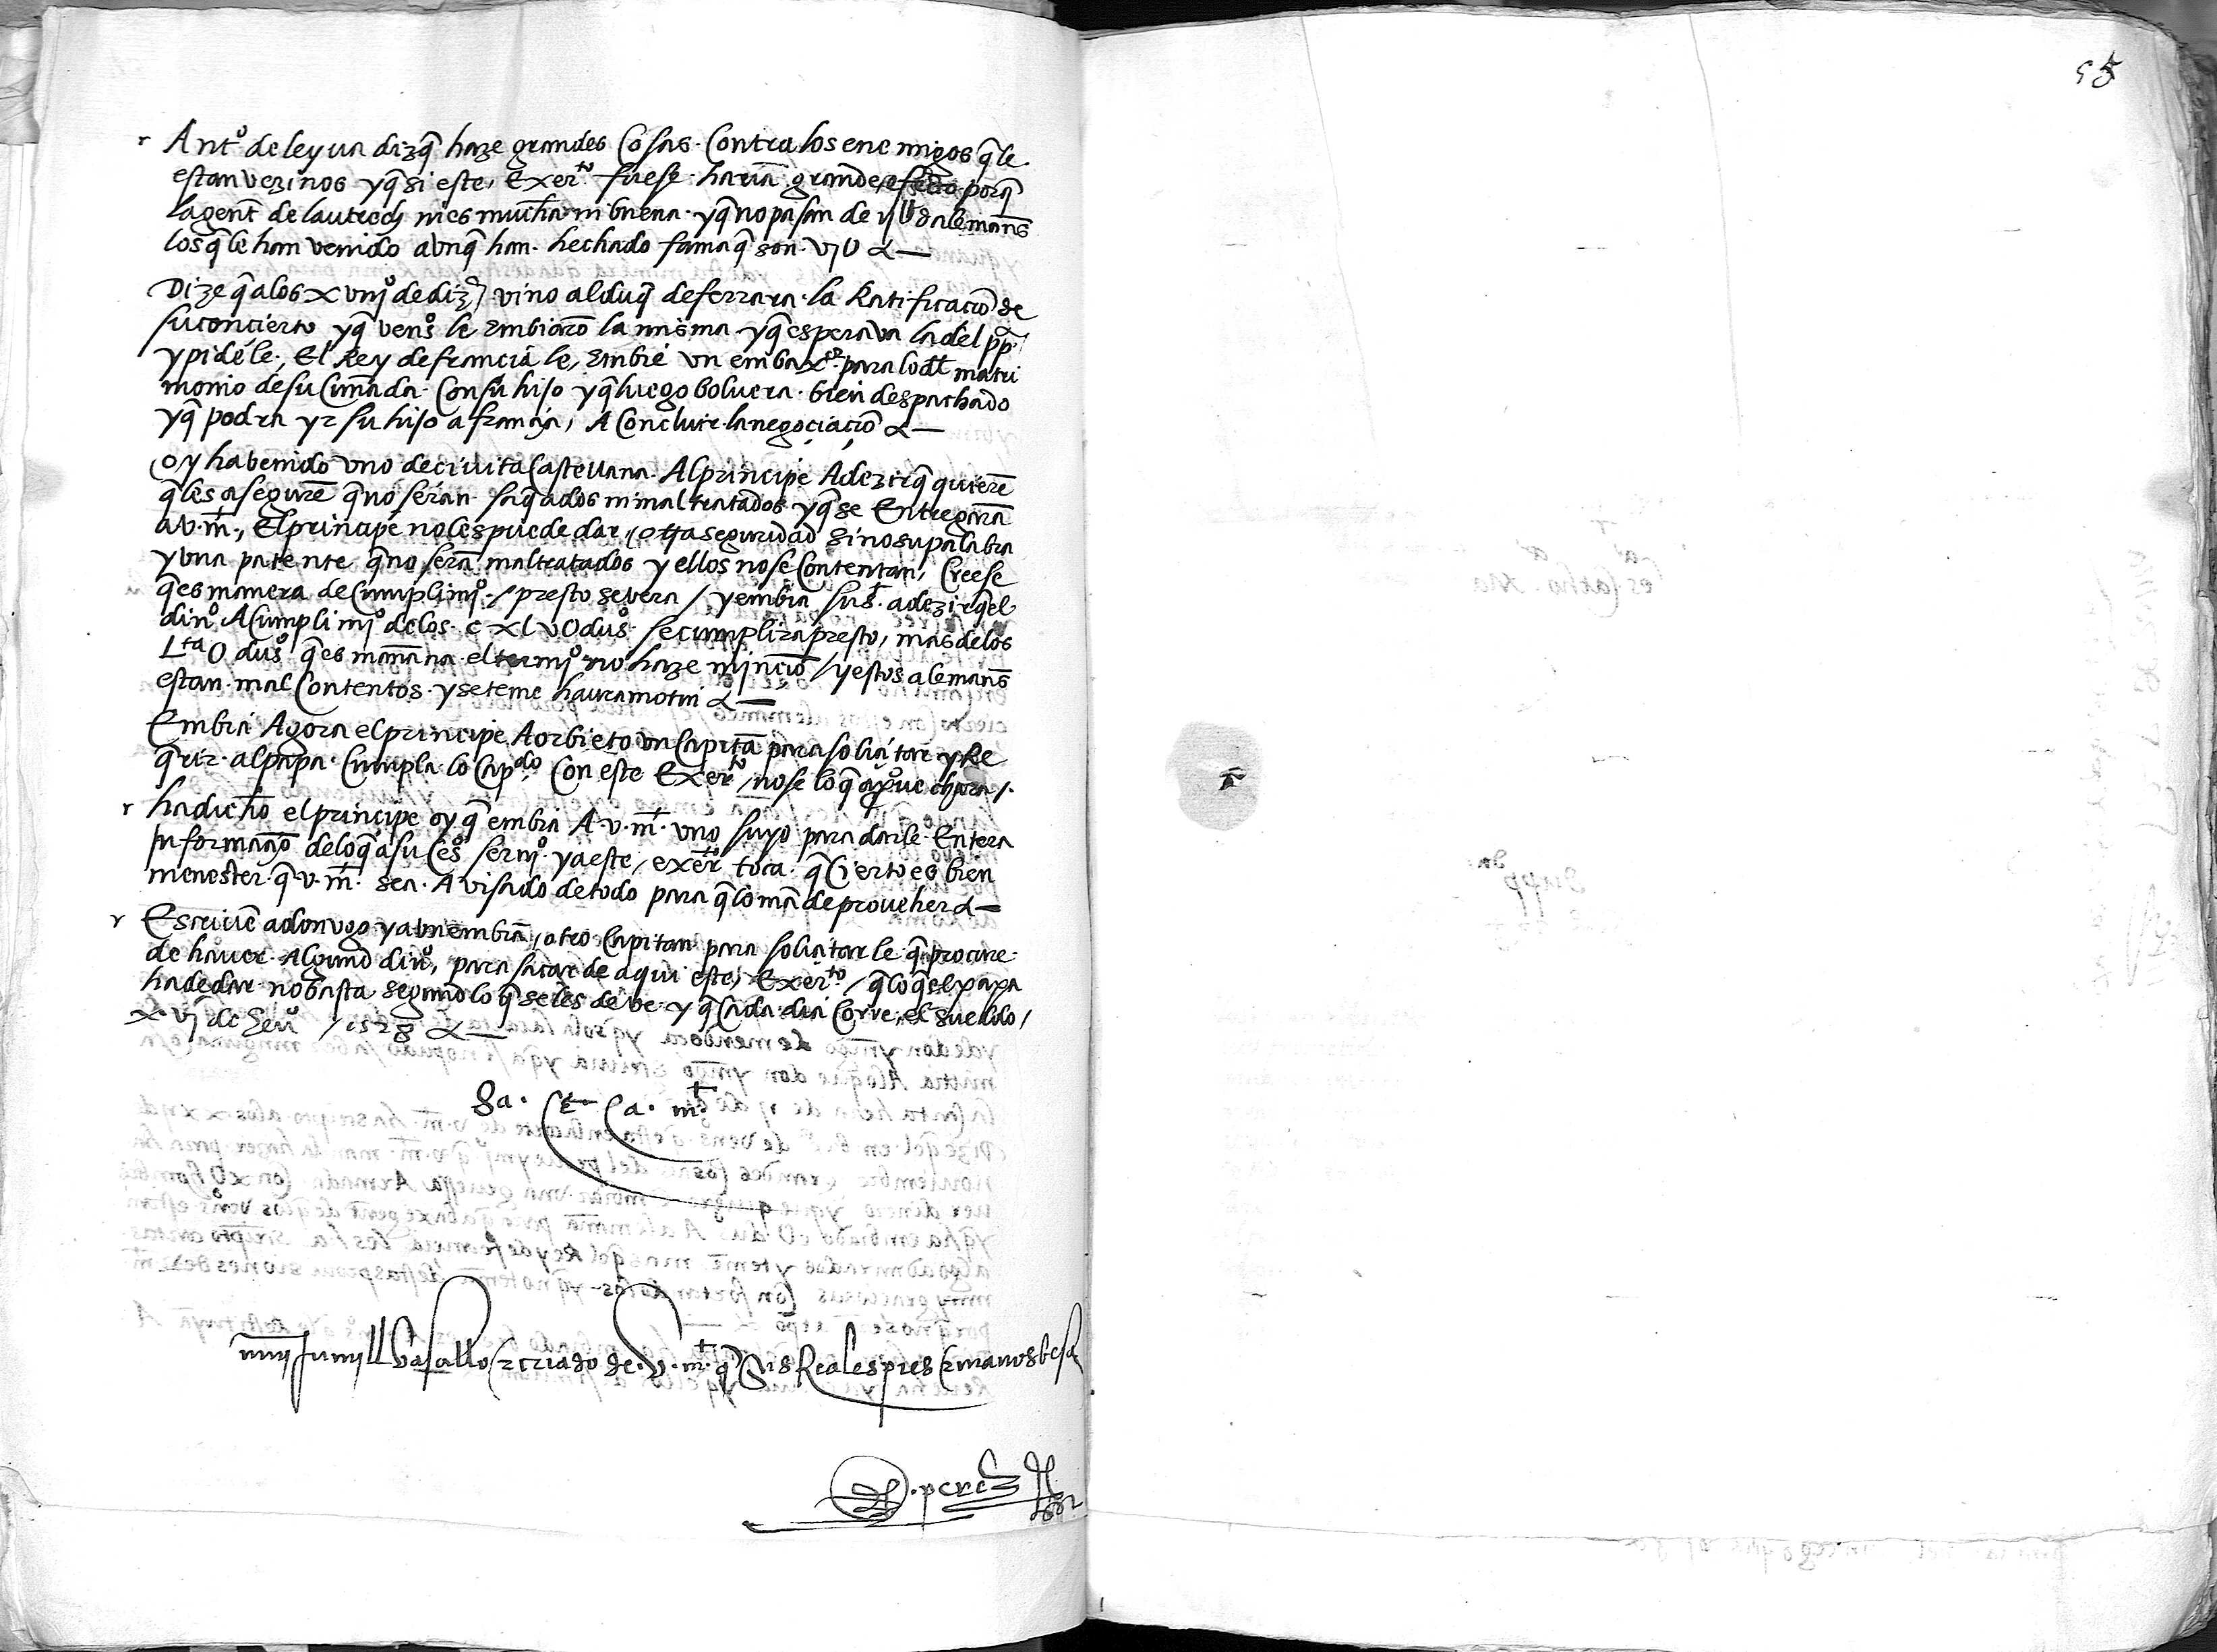 55
r Ant.º de leyva diz q̃ haze grandes Cosas. Contra los enemigos q̃ le
estan vezinos y q̃ si este, Exer.to fuese. hariã grande efecto porq̃
la gent̃ de lautrech ni es mucha ni buena. y q̃ no pasan de ijU alemanẽs
los q̃ le han venido avnq̃ han. hechado fama q̃ son. vjU &—
Dize q̃ a los xviijº de diz.e vino al duq̃ de ferrara. la Ratificaciõ de
su concierto y q̃ venº.s le Embiarõ la misma y q̃ esperava la del pp.
y pidele, El Rey de francia le, Embie un embax.or para lo del matri
monio de su Cuñada. Con su hijo y q̃ luego bolvera. bien despachado
y q̃ podra yr su hijo a francia, A Concluir la negociaciõ &—
oy ha benido uno de civita Castellana. Al principe A dezir q̃ quierẽ
q̃ les asegurẽ q̃ no serán. saq̃ados ni mal tratados y q̃ se Entregarã
a v. m.t, El principe no les puede dar, otra seguridad sino su palabra
y una patente q̃ no serã maltratados y ellos no se Contentan, Creese
q̃ es manera de Cumplimjº./ presto se vera / y embia su s.t a dezir q̃ el
dinº A Cumplimjº de los. c xlvU duºs se cumplira presto, mas de los
L.ta U duºs q̃ es mañana el termjº no haze minciõ / y estos alemanẽs
estan. mal Contentos. y se teme havra motin &—
Embia Agora el principe A orbieto un Capitã para solicitar y Re
q̃rir. al papa. Cumpla lo Cap.do Con este Exer.to, no se lo q̃ apºvechara /.
r ha dicho el principe oy q̃ embia A. v. m.t uno suyo para darle. Entera
Informaciõ de lo q̃ a su Ces.º serujº. y a este, exer.to toca. q̃ Cierto es bien
menester. q̃ v. m.t sea. Avisado de todo para q̃ lo mãde proveher &—
r Escrivẽ a don ugo y avn embiã, otro Capitan para solicitarle. q̃ procure.
de haver. Algund dinº, para sacar de aqui este, Exer.to / q̃ lo q̃ el papa
ha de dar. no basta segund lo q̃ se les deve. y q̃ Cada dia Corre, el sueldo /
xvj de Genº / 1528 &—
Sa. Ce. Ca. m.t
muj humjll vasallo z criado de. v. m.t q̃ sus Reales pies z manos besa
perez